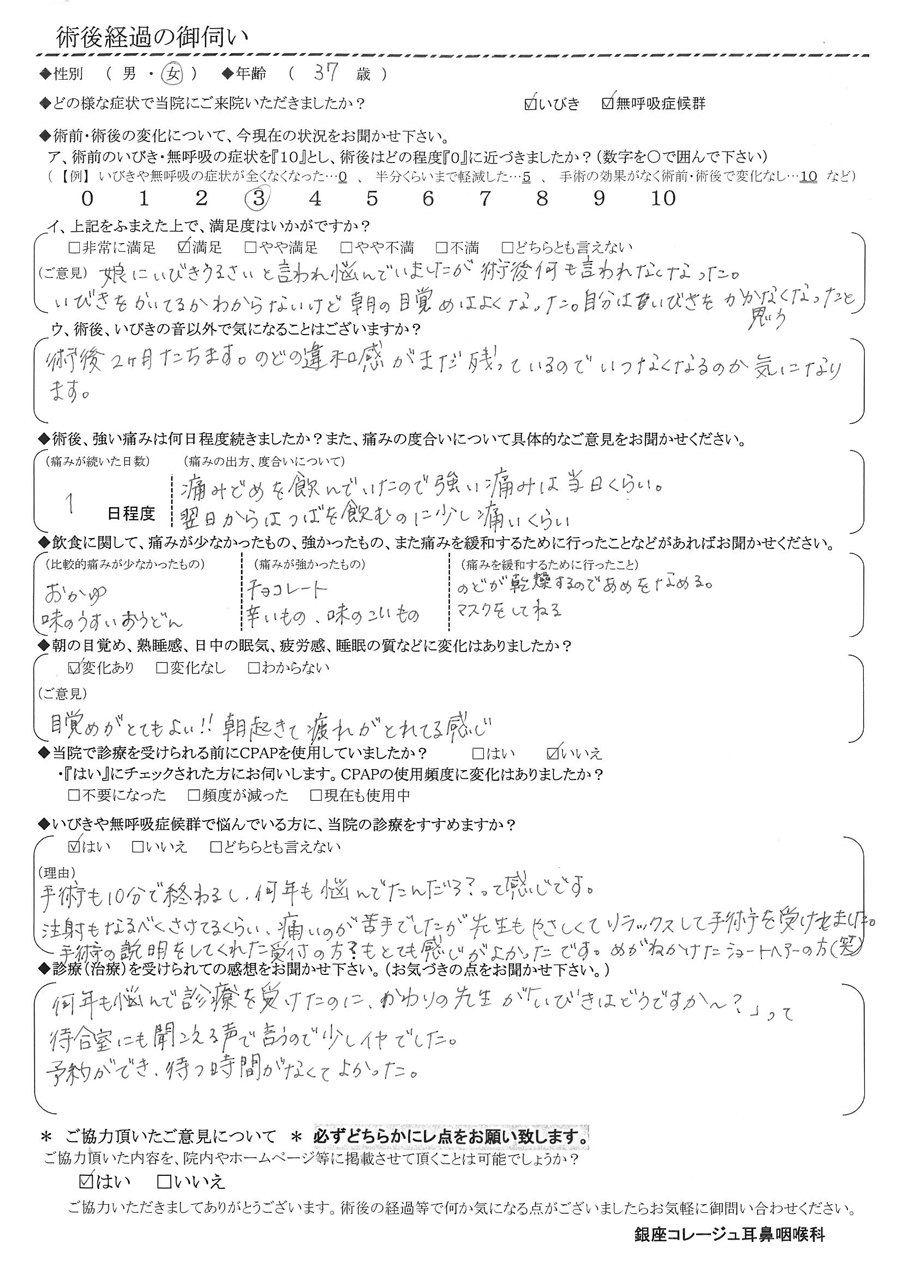 術後経過の御伺い
◆性別 （ 男 ・ 女 ） ◆年齢 （ 37 歳 ）
◆どの様な症状で当院にご来院いただきましたか？ ☑いびき ☑無呼吸症候群
◆術前・術後の変化について、今現在の状況をお聞かせ下さい。
ア、術前のいびき・無呼吸の症状を『10』とし、術後はどの程度『0』に近づきましたか？（数字を○で囲んで下さい）
（ 【例】 いびきや無呼吸の症状が全くなくなった…0 、 半分くらいまで軽減した…5 、 手術の効果がなく術前・術後で変化なし…10 など）
0 1 2 3 4 5 6 7 8 9 10
イ、上記をふまえた上で、満足度はいかがですか？
□非常に満足 ☑満足 □やや満足 □やや不満 □不満 □どちらとも言えない
（ご意見） 娘にいびきうるさいと言われ悩んでいましたが 術後何も言われなくなった。
いびきをかいてるかわからないけど 朝の目覚めはよくなった。自分はいびきをかかなくなったと
思う
ウ、術後、いびきの音以外で気になることはございますか？
術後2ヶ月たちます。のどの違和感がまだ残っているのでいつなくなるのか気になり
ます。
◆術後、強い痛みは何日程度続きましたか？また、痛みの度合いについて具体的なご意見をお聞かせください。
（痛みが続いた日数） （痛みの出方、度合いについて）
痛みどめを飲んでいたので強い痛みは当日くらい。
1 日程度
翌日からはつばを飲むのに少し痛いくらい
◆飲食に関して、痛みが少なかったもの、強かったもの、また痛みを緩和するために行ったことなどがあればお聞かせください。
（比較的痛みが少なかったもの） （痛みが強かったもの） （痛みを緩和するために行ったこと）
おかゆ チョコレート のどが乾燥するのであめをなめる。
味のうすいおうどん 辛いもの、味のこいもの マスクをしてねる
◆朝の目覚め、熟睡感、日中の眠気、疲労感、睡眠の質などに変化はありましたか？
☑変化あり □変化なし □わからない
（ご意見）
目覚めがとてもよい!! 朝起きて疲れがとれてる感じ
◆当院で診療を受けられる前にCPAPを使用していましたか？ □はい ☑いいえ
・『はい』にチェックされた方にお伺いします。CPAPの使用頻度に変化はありましたか？
□不要になった □頻度が減った □現在も使用中
◆いびきや無呼吸症候群で悩んでいる方に、当院の診療をすすめますか？
☑はい □いいえ □どちらとも言えない
（理由）
手術も10分で終わるし、何年も悩んでたんだろ？って感じです。
注射もなるべくさけてるくらい、痛いのが苦手でしたが先生もやさしくてリラックスして手術を受けれました。
手術の説明をしてくれた受付の方？もとても感じがよかったです。めがねかけたショートヘアーの方（笑）
◆診療（治療）を受けられての感想をお聞かせ下さい。（お気づきの点をお聞かせ下さい。）
何年も悩んで診療を受けたのに、かわりの先生が「いびきはどうですか〜？」って
待合室にも聞こえる声で言うので少しイヤでした。
予約ができ、待つ時間がなくてよかった。
＊ ご協力頂いたご意見について ＊ 必ずどちらかにレ点をお願い致します。
ご協力頂いた内容を、院内やホームページ等に掲載させて頂くことは可能でしょうか？
☑はい □いいえ
ご協力いただきましてありがとうございます。術後の経過等で何か気になる点がございましたらお気軽に御問い合わせください。
銀座コレージュ耳鼻咽喉科